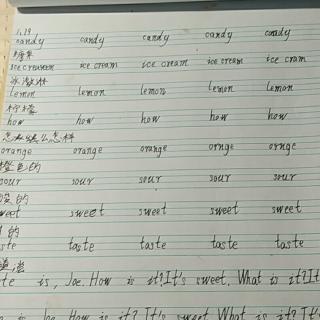 1.19
candy candy candy candy candy
糖果
icecream ice cream ice cream ice cream ice cram
冰激淋
lemon lemon lemon lemon lemon
柠檬
how how how how how
怎么样
orange orange orange ornge ornge
橙色的
sour sour sour sour sour
酸的
weet sweet sweet sweet sweet
的
ste taste taste taste taste
te is, Joe. How is it? It's sweet. What is it? It
is Joe How is it? It's sweet What is it?